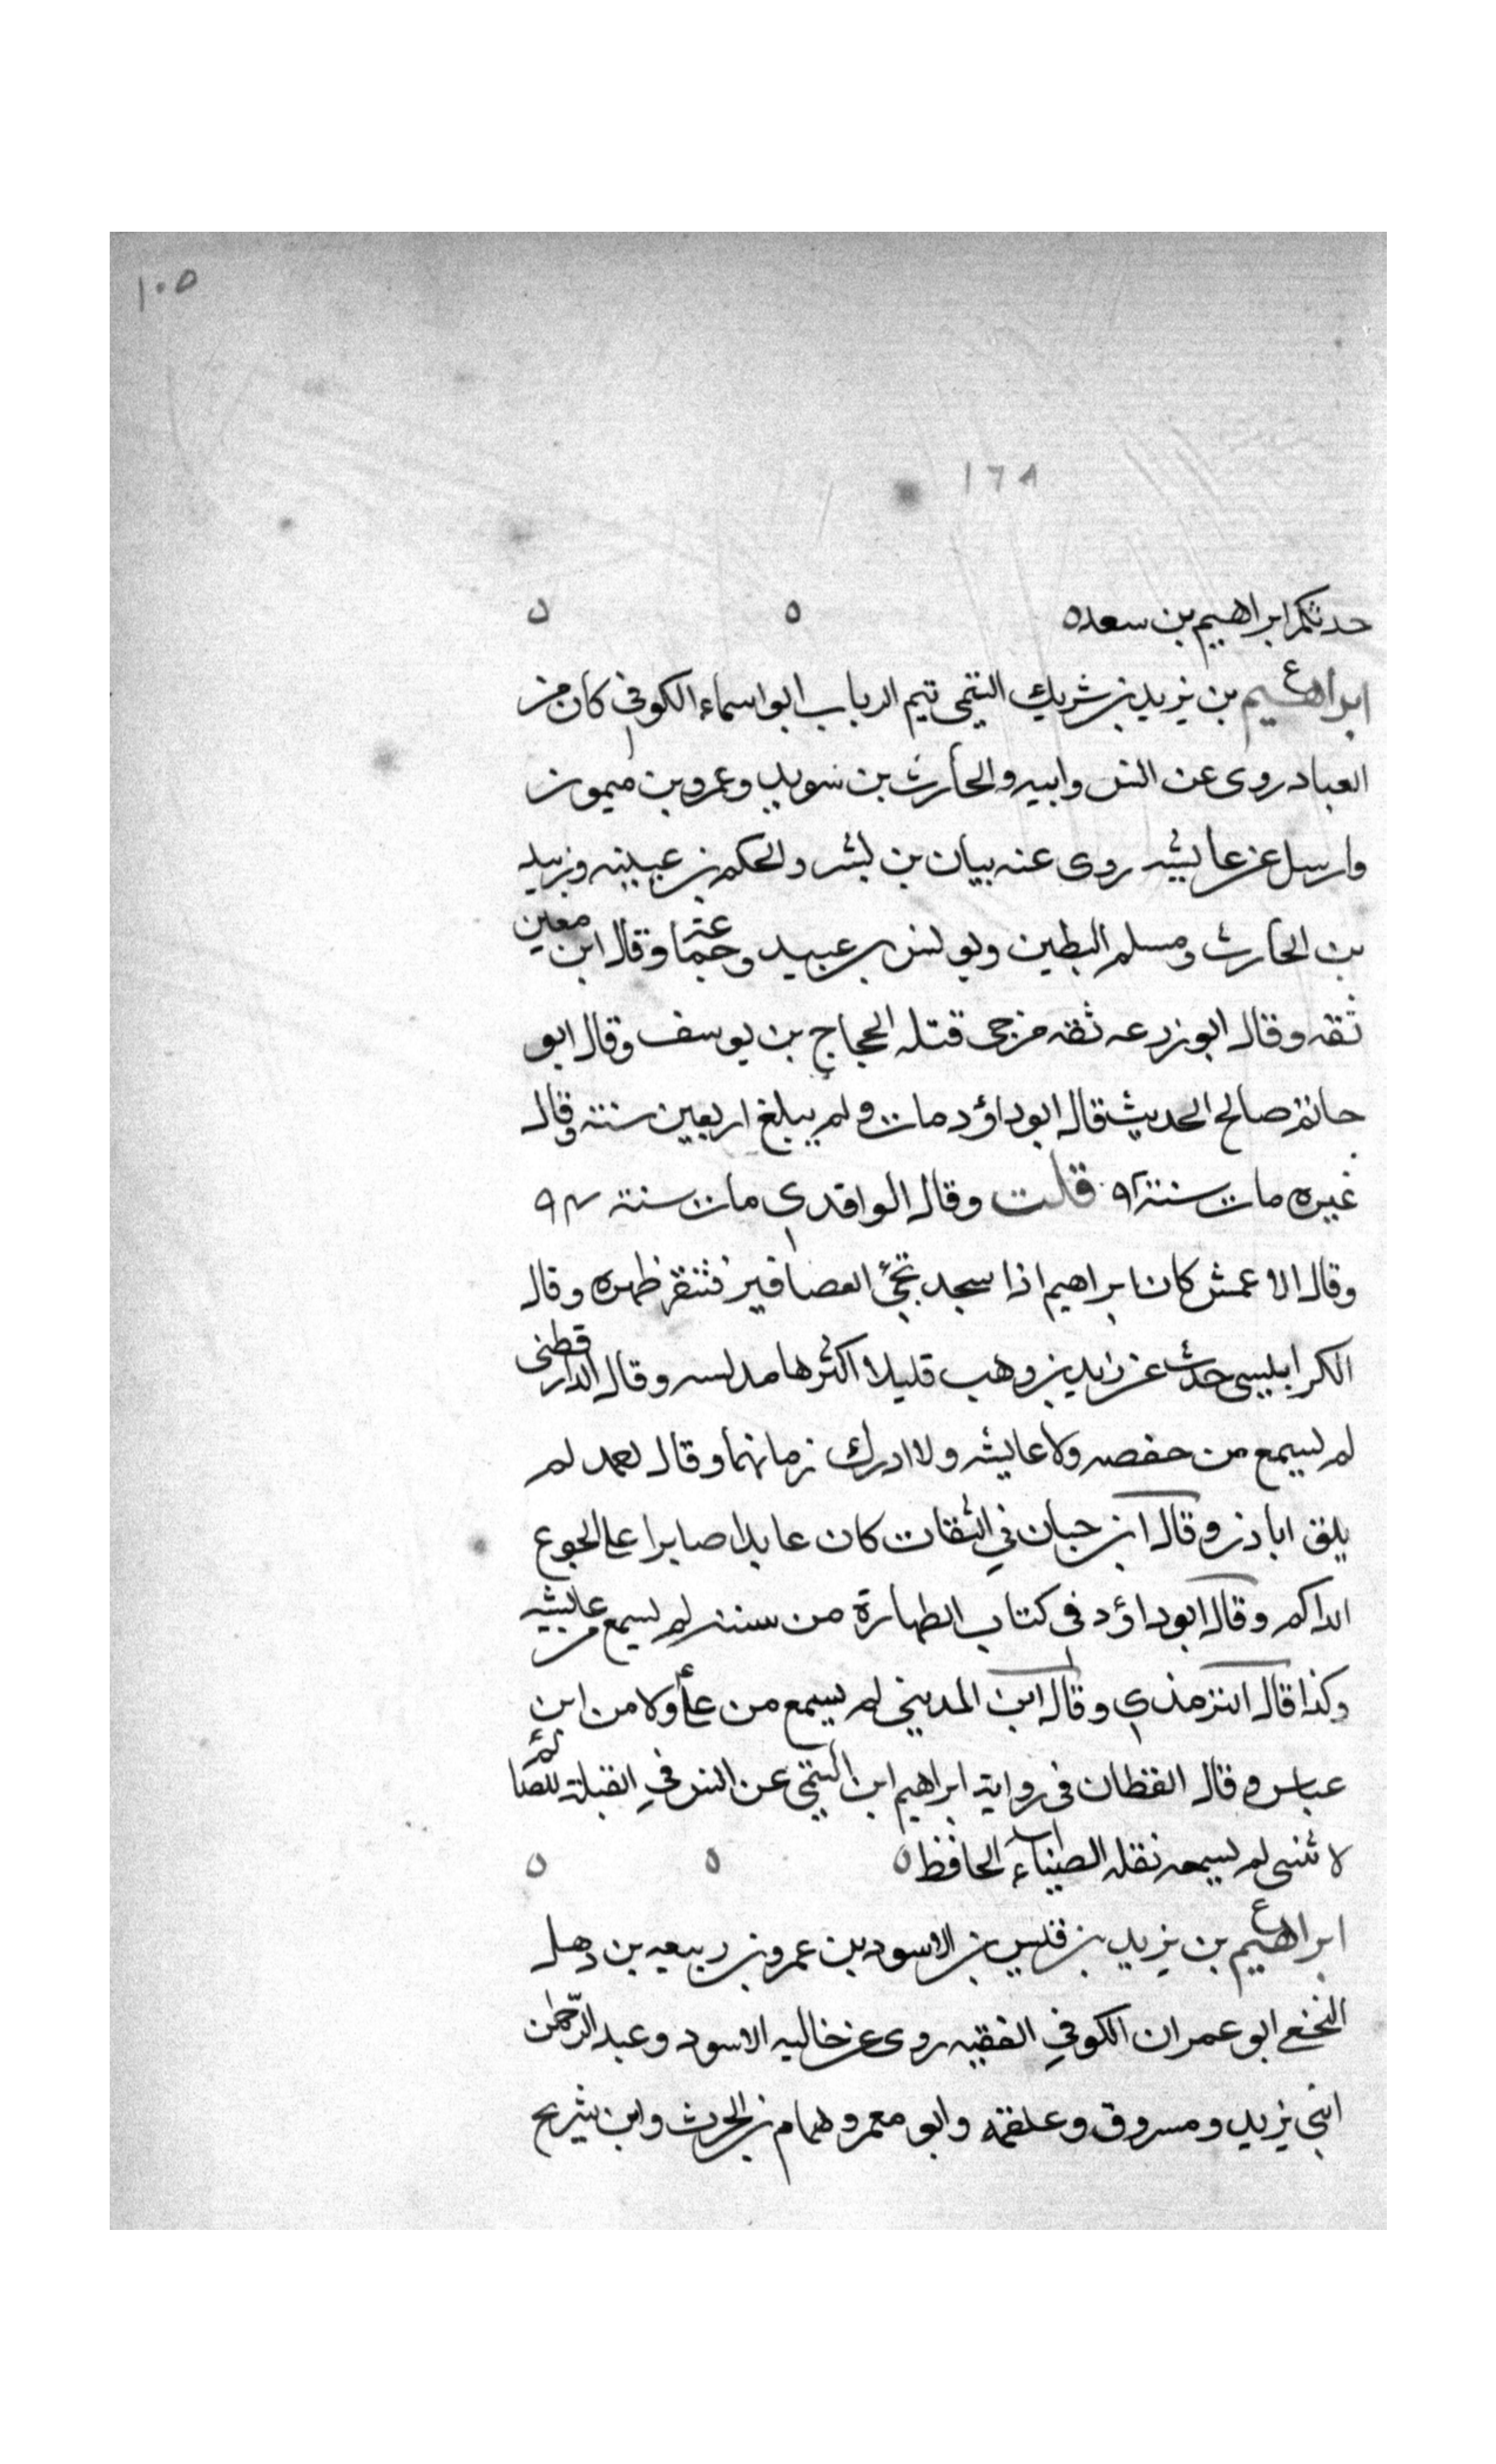 ١٠٥
١٦٨
حدثكم ابراهيم بن سعد ه ه ه
ع
ابراهيم بن يزيد بن شريك التيمى تيم الرباب ابو اسماء الكوفي كان من
العباد روى عن انس وابيه والحارث بن سويد وعمرو بن ميمون
وارسل عن عايشه روى عنه بيان بن بشر والحكم بن عيينه وزبيد
بن الحارث ومسلم البطين ويونس بن عبيد وجماعة وقال ابن معين
ثقه وقال ابو زرعه ثقه مرجى قتله الحجاج بن يوسف وقال ابو
حاتم صالح الحديث قال ابو داؤد مات ولم يبلغ اربعين سنة وقال
غيره مات سنة ٩٢ قلت وقال الواقدي مات سنة ٩٤
وقال الاعمش كان ابراهيم اذا سجد تجئ العصافير فتنقر ظهره وقال
الكرابيسي حدث عن زيد بن وهب قليلا اكثرها مدلسه وقال الدارقطنى
لم يسمع من حفصه ولا عايشه ولا ادرك زمانهما وقال احمد لم
يلق ابا ذر وقال ابن حبان في الثقات كان عابدا صابرا على الجوع
الداكم وقال ابو داؤد في كتاب الطهارة من سننه لم يسمع من عايشه
وكذا قال الترمذي وقال ابن المديني لم يسمع من على ولا من ابن
عباس وقال القطان في رواية ابراهيم ابن التيمي عن انس في القبلة للصائم
لا شئ لم يسمعه نقله الضياء الحافظ ه ه ه
ع
ابراهيم بن يزيد بن قيس بن الاسود بن عمرو بن ربيعه بن دهل
النخعي ابو عمران الكوفي الفقيه روى عن خاليه الاسود وعبد الرحمن
ابني يزيد ومسروق وعلقمه وابو معمر وهمام بن الحرث وابن شريح